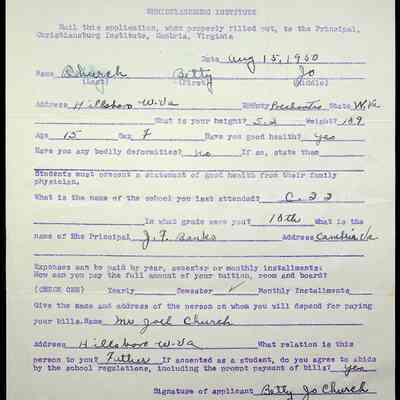 CHRISTIANSBURG INSTITUTE
Mail this application, when properly filled out, to the Principal,
Christiansburg Institute, Cambria, Virginia
Date Aug 15, 1950
Name Church Betty Jo
(Last) (First) (Middle)
Address Hillsboro W.Va County Pocahontas State W.Va
What is your height? 5.2 Weight? 129
Age 15 Sex F Have you good health? yes
Have you any bodily deformities? no If so, state them
Students must present a statement of good health from their family
physician.
What is the name of the school you last attended? C.
In what grade were you? 10th What is the
name of the Principal J. F. Banks Address Cambria Va
Expenses can be paid by year, semester or monthly installments:
How can you pay the full amount of your tuition, room and board?
(CHECK ONE) Yearly Semester ✓ Monthly Installments
Give the name and address of the person on whom you will depend for paying
your bills. Name Mr Joel Church
Address Hillsboro W.Va What relation is this
person to you? Father If accepted as a student, do you agree to abide
by the school regulations, including the prompt payment of bills? yes
Signature of applicant Betty Jo Church